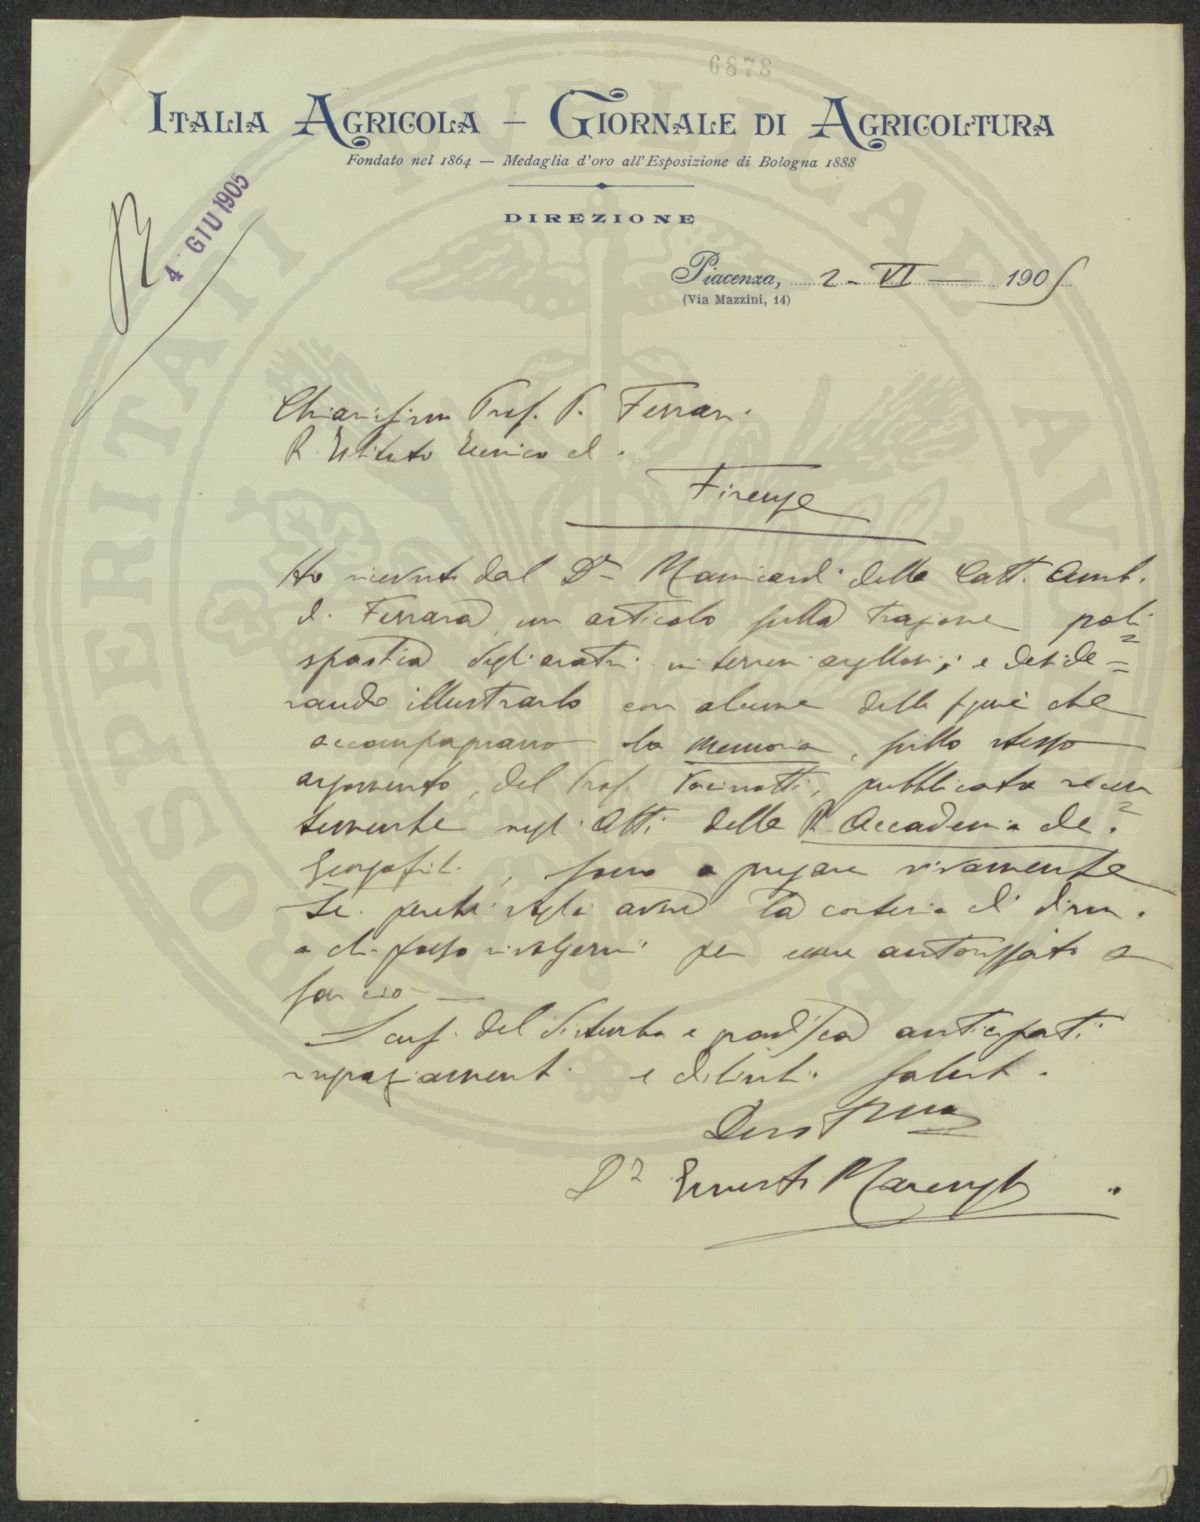 6878
ITALIA AGRICOLA — GIORNALE DI AGRICOLTURA
Fondato nel 1864 — Medaglia d'oro all'Esposizione di Bologna 1888
DIREZIONE
R
4 GIU 1905
Piacenza, 2 - VI — 1905
(Via Mazzini, 14)
Chiarissimo Prof. P. Ferrari
R. Istituto Tecnico di
Firenze
Ho ricevuto dal Dr Mamicardi della Catt. Amb.
di Ferrara un articolo sulla trazione poli=
spastica degli aratri in terreni argillosi; e deside=
rando illustrarlo con alcune delle figure che
accompagnano la memoria, sullo stesso
argomento, del Prof. Vacinotti, pubblicata recen=
temente negli Atti della R. Accademia dei
Georgofili, sono a pregare vivamente
Lei perché voglia avere la cortesia di dirmi
a chi posso rivolgermi per essere autorizzato a
far ciò —
Scusi del disturbo e gradisca anticipati
ringraziamenti e distinti saluti.
Devotissimo
Dr Ernesto Marenghi
SPERITATI PUBLICAE AUGENDAE